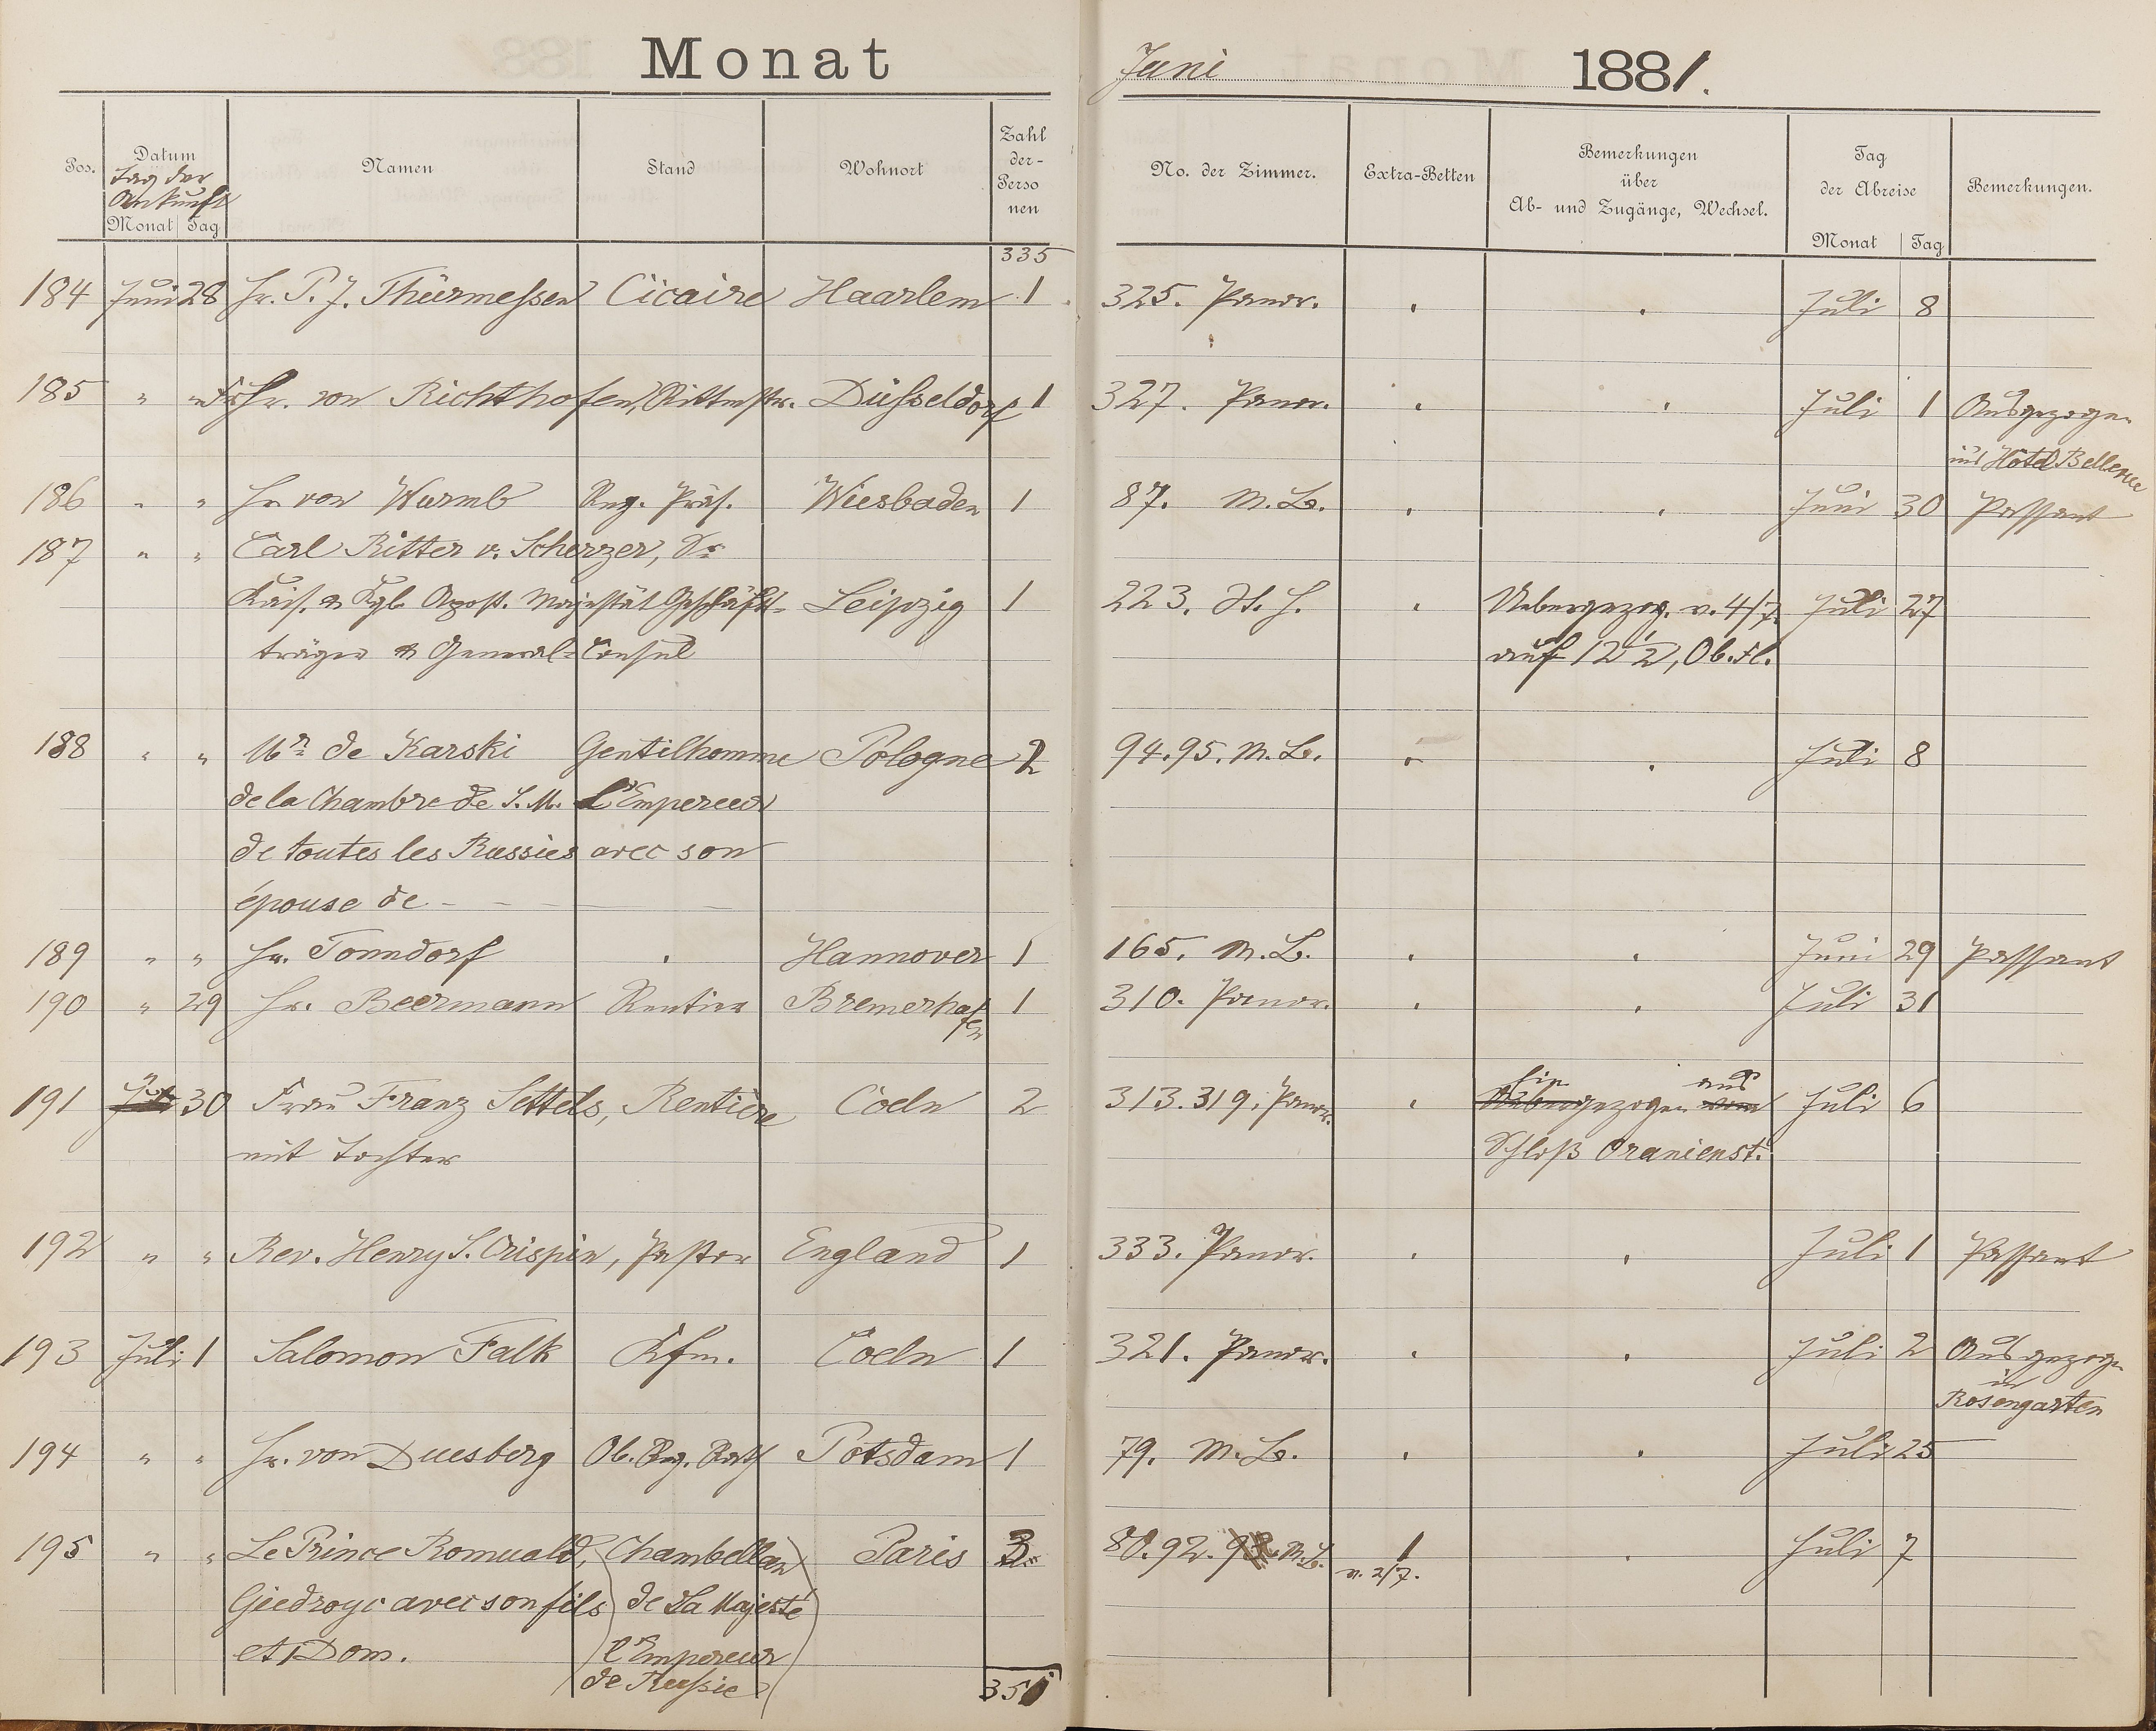 Monat Juni 1881.
Pos. Datum Namen Stand Wohnort Zahl der Personen No. der Zimmer. Extra-Betten Bemerkungen über Ab- und Zugänge, Wechsel. Tag der Abreise Bemerkungen.
Tag der
Ankunft
Monat Tag Monat Tag
335
184 Juni 28 Hr. P. J. Thürmessen Cicaire Haarlem 1 325. Panor. Juli 8
185 " " Frhr. von Richthofen, Rittmstr. Düsseldorf 1 327. Panor. Juli 1 Ausgezogen
ins Hôtel Bellevue
186 " " Hr. von Wurmb Reg. Präs. Wiesbaden 1 87. M. B. Juni 30 Passant
187 " " Carl Ritter v. Scherzer, Dr.
Kais. & Kgl. Apost. Majestät Geschäfts- Leipzig 1 223. Uebergezog. v. 4/7. Juli 27
träger & General-Consul auf 12 1/2, Ob. Fl.
188 " " Mr. de Karski Gentilhomme Pologne 2 94.95. M. B. Juli 8
de la Chambre de S. M. l'Empereur
de toutes les Russies avec son
épouse de - - -
189 " " Hr. Tonndorf Hannover 1 165. M. B. Juni 29 Passant
190 " 29 Hr. Beermann Rentier Bremerhafen 1 310. Panor. Juli 31
191 " 30 Frau Franz Settels, Rentière Cöln 2 313.319. Panor. Hingezogen aus Juli 6
mit Tochter Schloß Oranienst.
192 " " Rev. Henry S. Crispin, Pastor England 1 333. Panor. Juli 1 Passant
193 Juli 1 Salomon Falk Kfm. Coeln 1 321. Panor. Juli 2 Ausgezogen
in
Rosengarten
194 " " Hr. von Duesberg Ob. Reg. Rath Potsdam 1 79. M. B. Juli 25
195 " " Le Prince Romuald, Chambellan Paris 3 80.92. M. B. 1 Juli 7
v. 2/7.
Giedroyc avec son fils de Sa Majesté
et 1 Dom. l'Empereur
de Russie
351